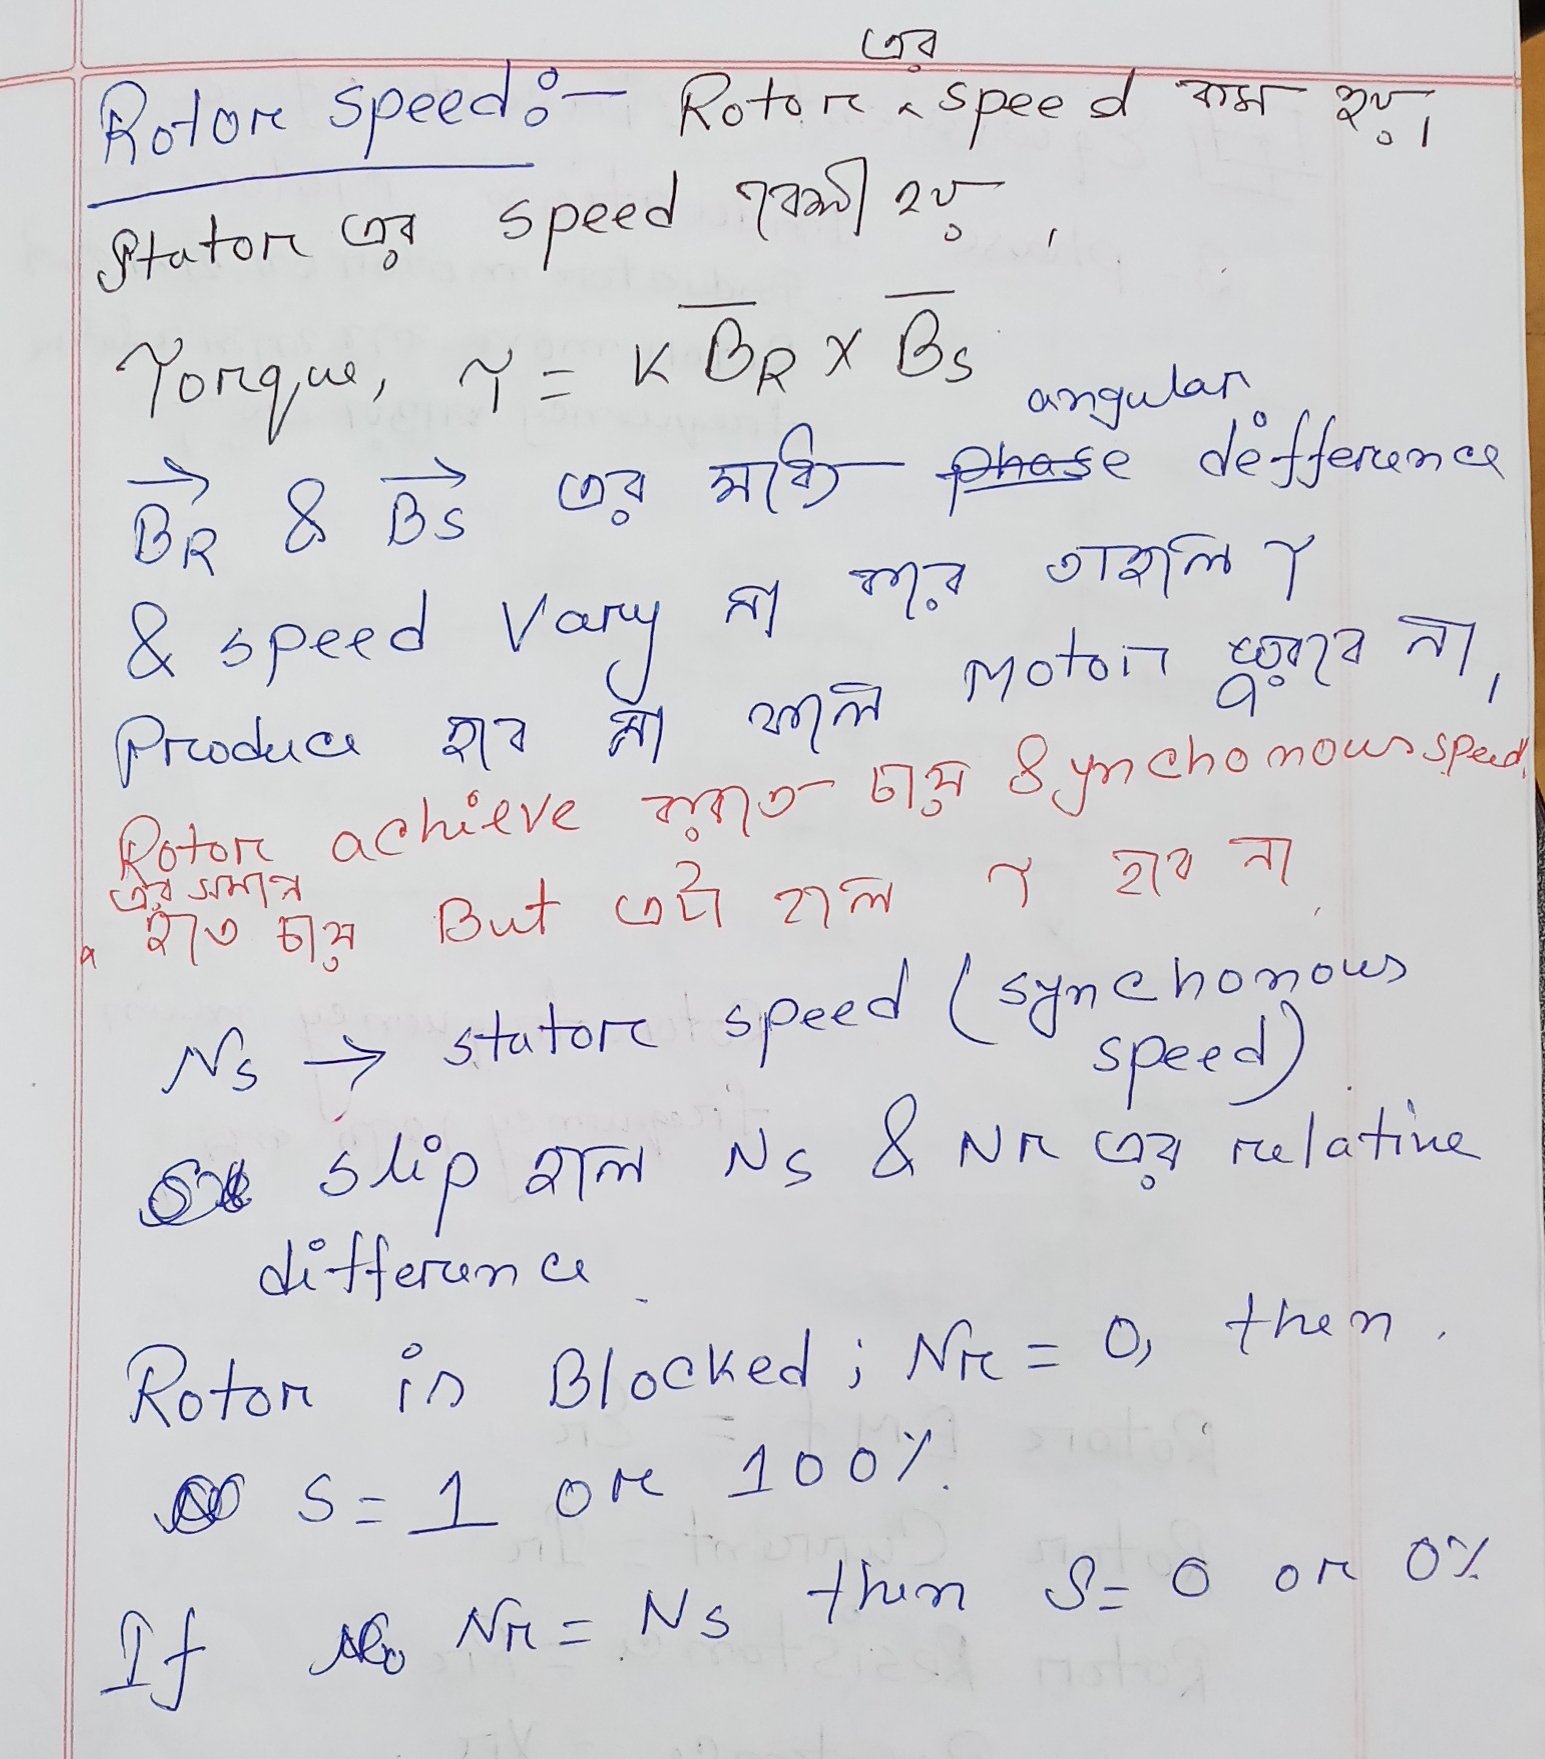 এর
Rotor speed:- Rotor ^ speed কম হয়।
Stator এর speed বেশী হয়।
Torque, τ = K B̅R × B̅S
angular
B⃗R & B⃗S এর মধ্যে ~~phase~~ difference
& speed vary না করে তাহলে τ
Produce হবে না ফলে motor ঘুরবে না।
Rotor achieve করতে চায় Synchonous speed.
এর সমান
^ হতে চায় But এটা হলে τ হবে না।
Ns → stator speed (synchonous
speed)
slip হলে Ns & Nr এর relative
difference
Rotor is Blocked; Nr = 0, then.
S = 1 or 100%.
If Nr = Ns then S = 0 or 0%